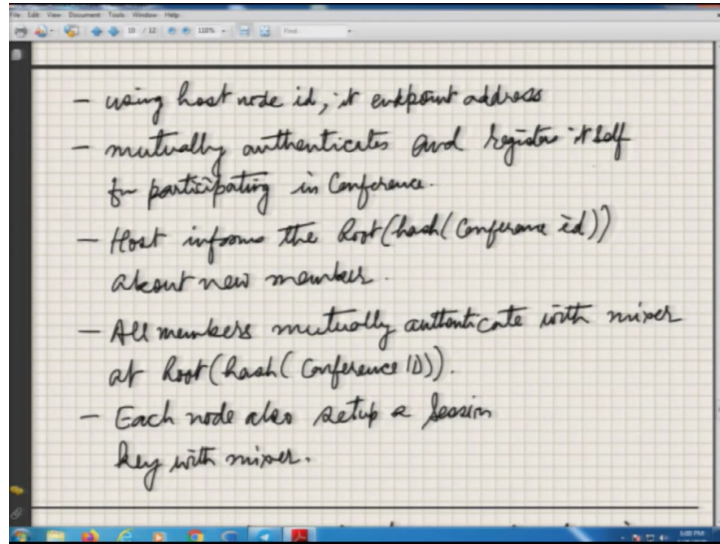 File Edit View Document Tools Window Help
10 / 12 110% Find
- using host node id, it endpoint address
- mutually authenticates and register itself
for participating in Conference.
- Host informs the Root(hash(Conference id))
about new member.
- All members mutually authenticate with mixer
at Root(hash(Conference ID)).
- Each node also setup a session
key with mixer.
5:00 PM